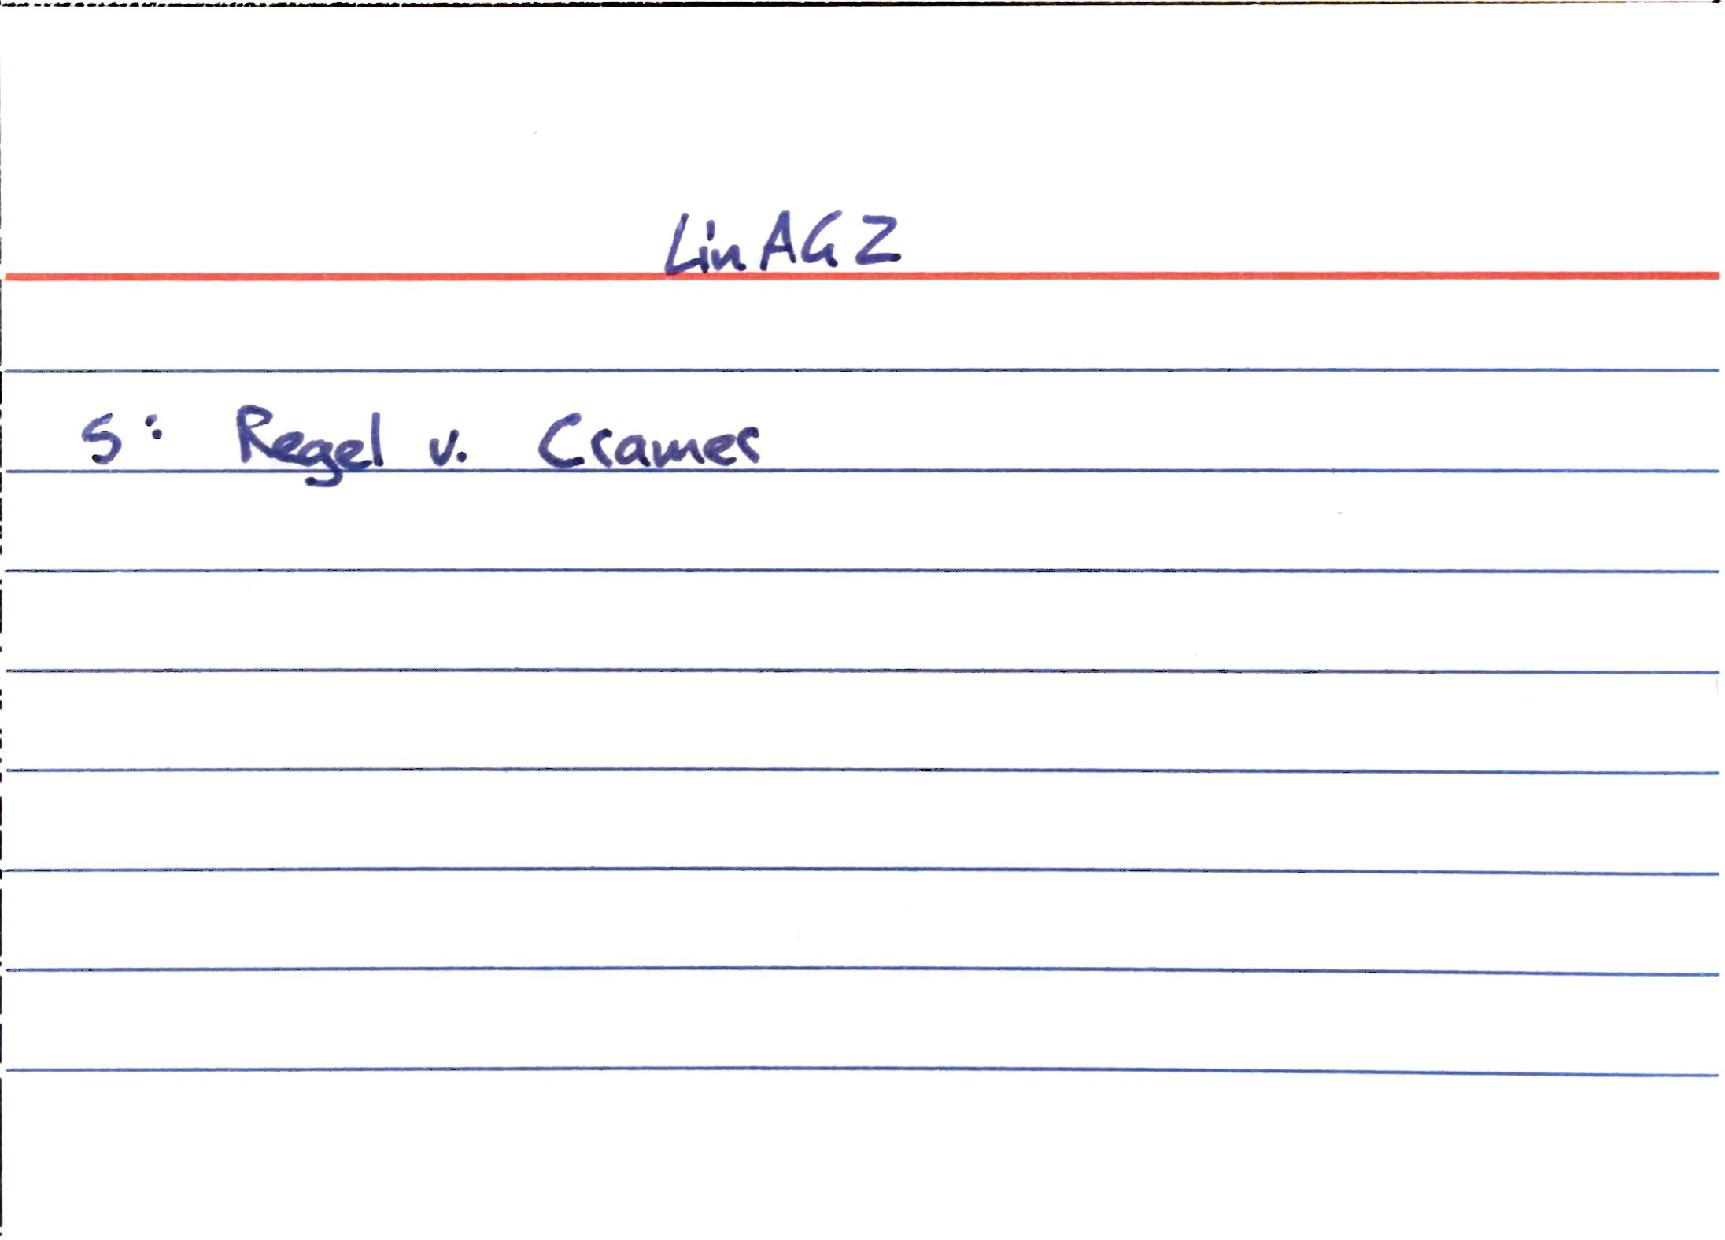 LinAG 2
S: Regel v. Cramer